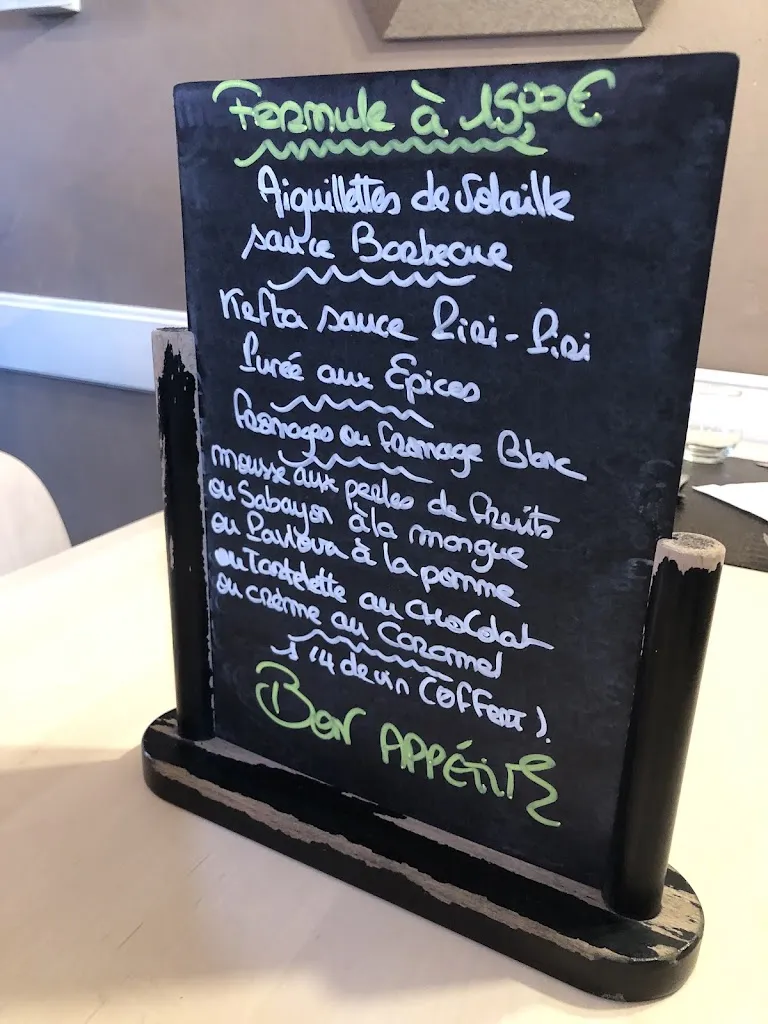 Formule à 15,00€
Aiguillettes de volaille
sauce Barbecue
Kefta sauce Piri-Piri
Purée aux Epices
fromages ou fromage Blanc
mousse aux perles de fruits
ou Sabayon à la mangue
ou Pavlova à la pomme
ou Tartelette au chocolat
ou crème au Caramel
1/4 de vin (offert).
Bon APPÉTIT